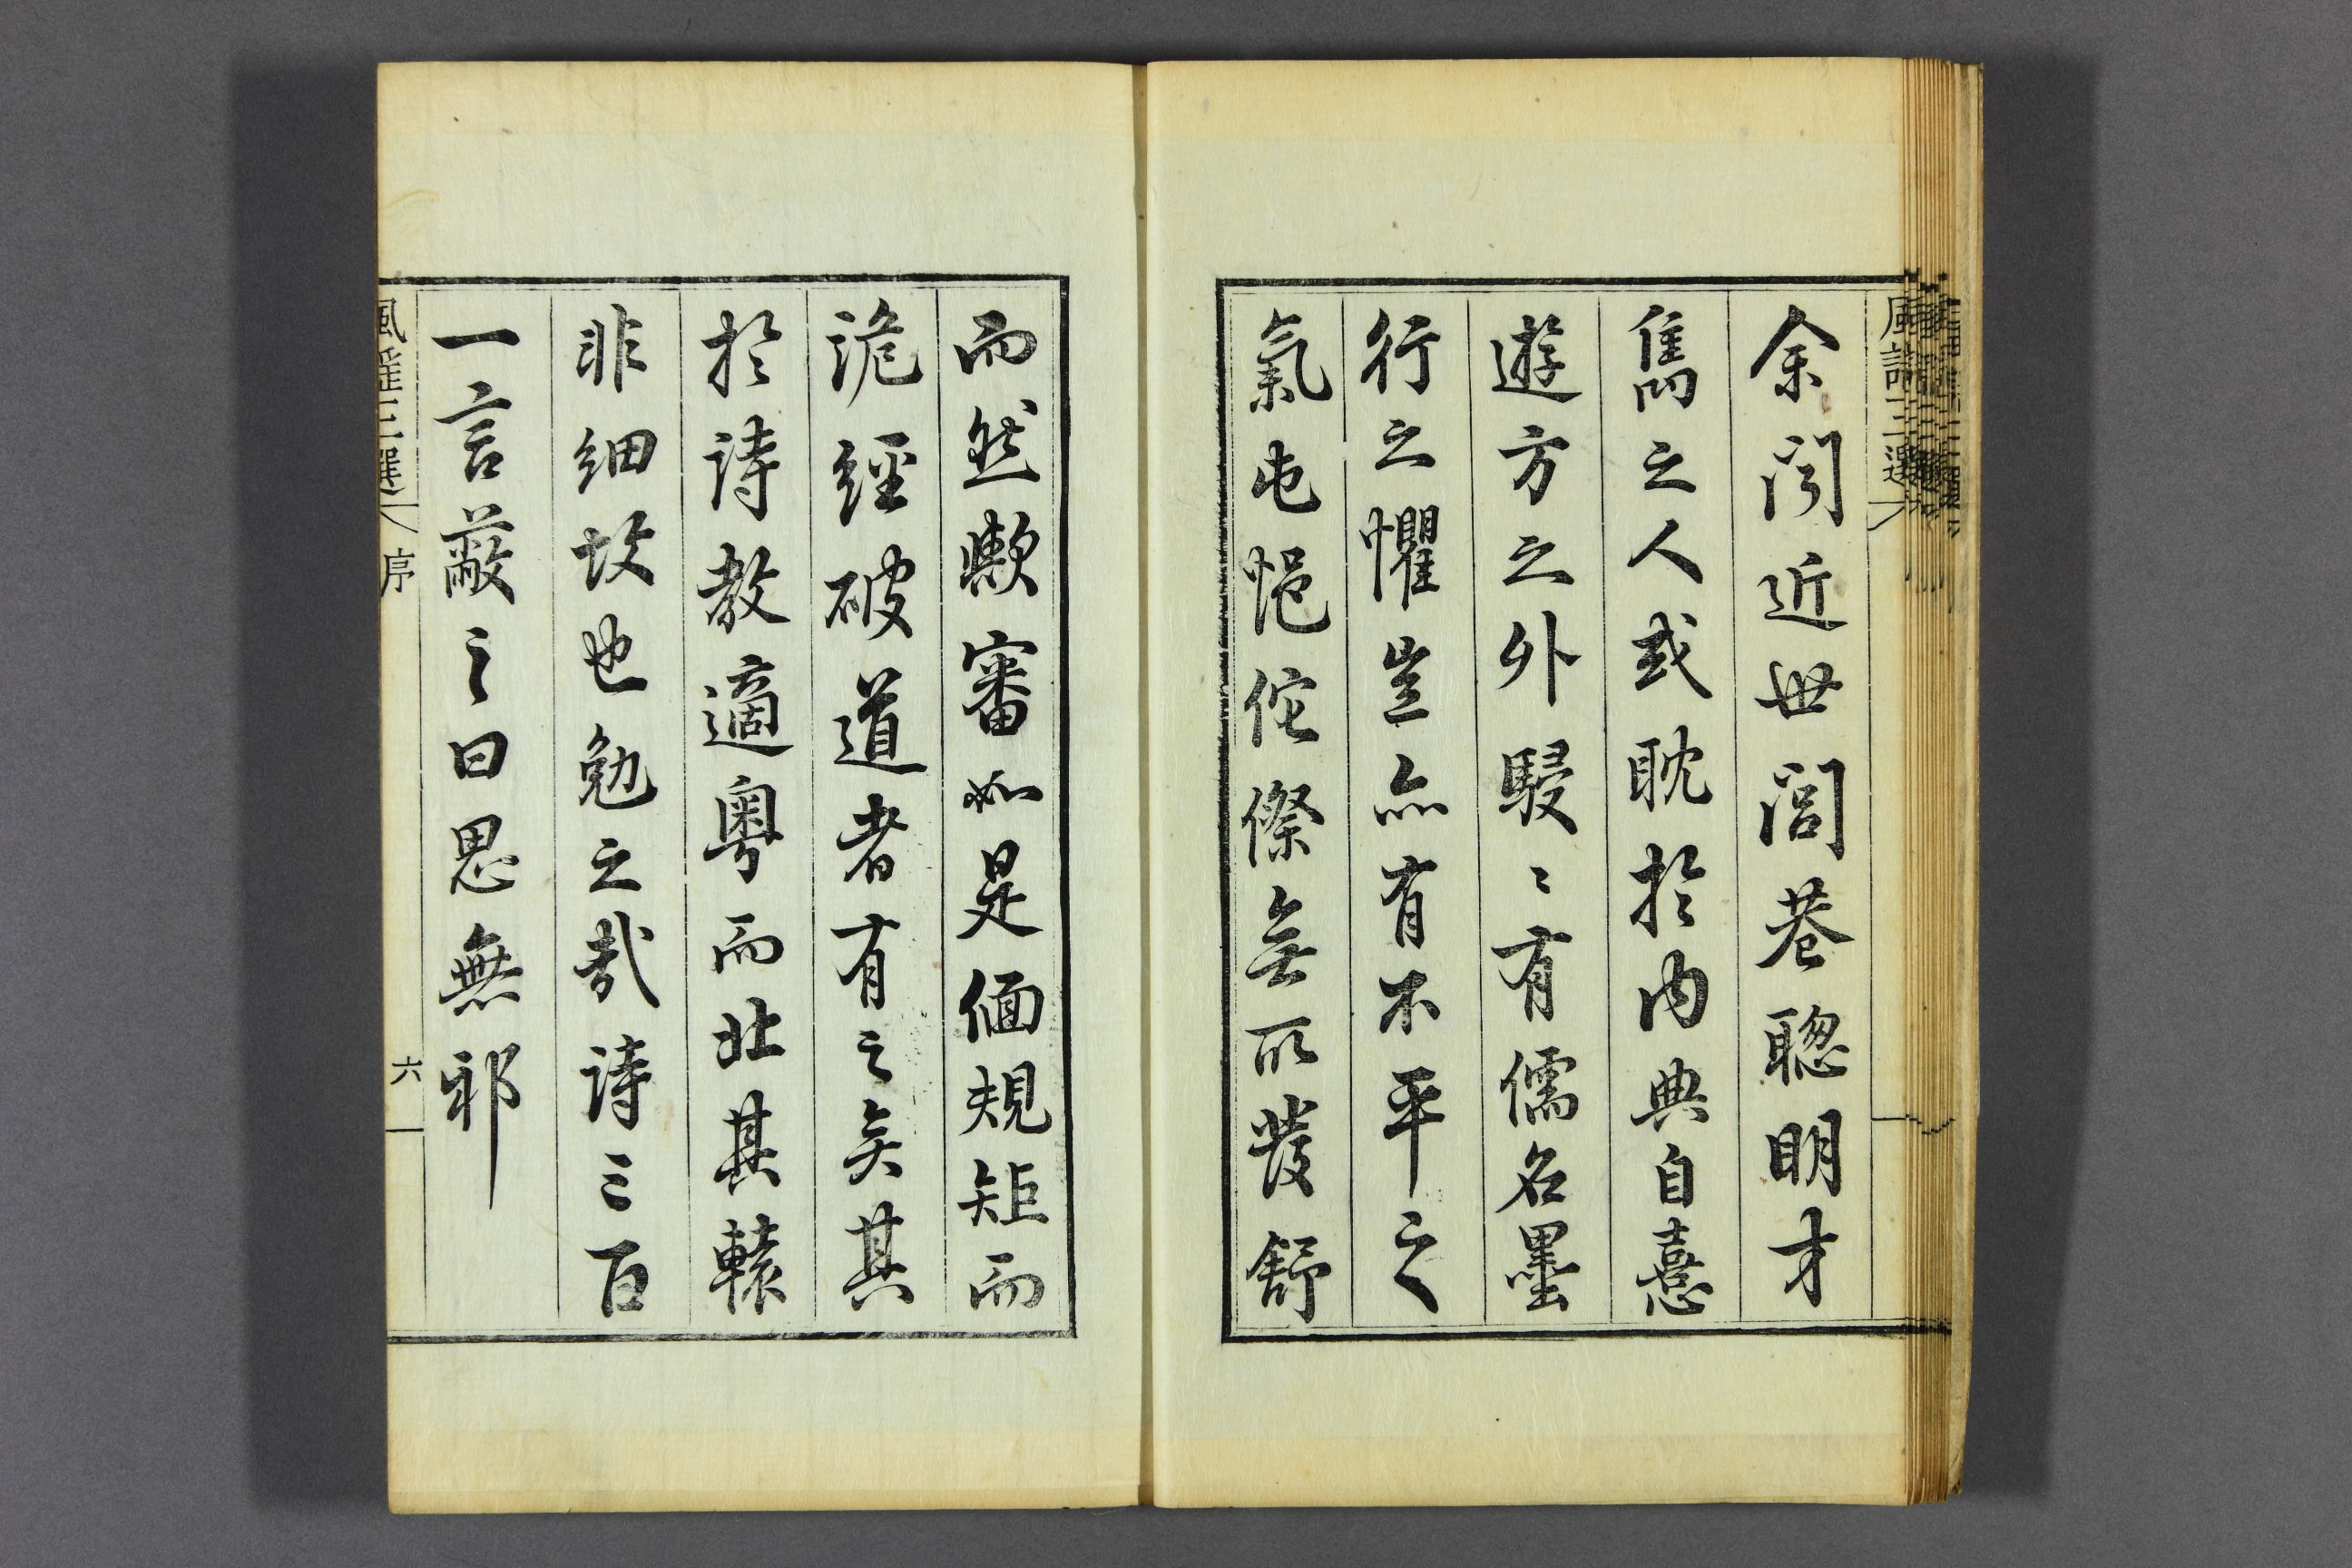 余聞近世閭巷聰明才
雋之人或耽於內典自憙
遊方之外駸〻有儒名墨
行之懼豈亦有不平之
氣屯悒侘傺無所發舒
而然歟審如是偭規矩而
詭經破道者有之矣其
於詩教適粵而北其轅
非細故也勉之哉詩三百
一言蔽之曰思無邪
風謠三選 序 六